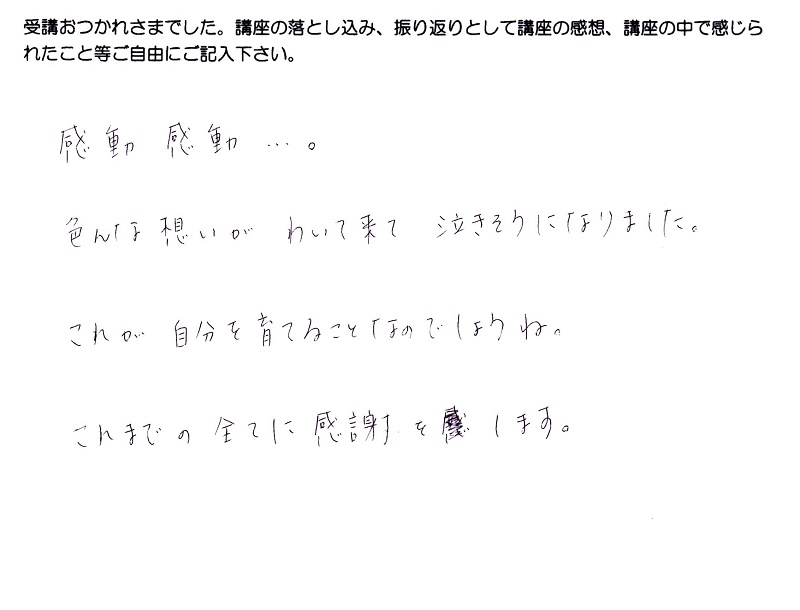 受講おつかれさまでした。講座の落とし込み、振り返りとして講座の感想、講座の中で感じら
れたこと等ご自由にご記入下さい。
感動 感動 …。
色んな想いが わいて来て 泣きそうになりました。
これが 自分を育てることなのでしょうね。
これまでの 全てに 感謝を します。